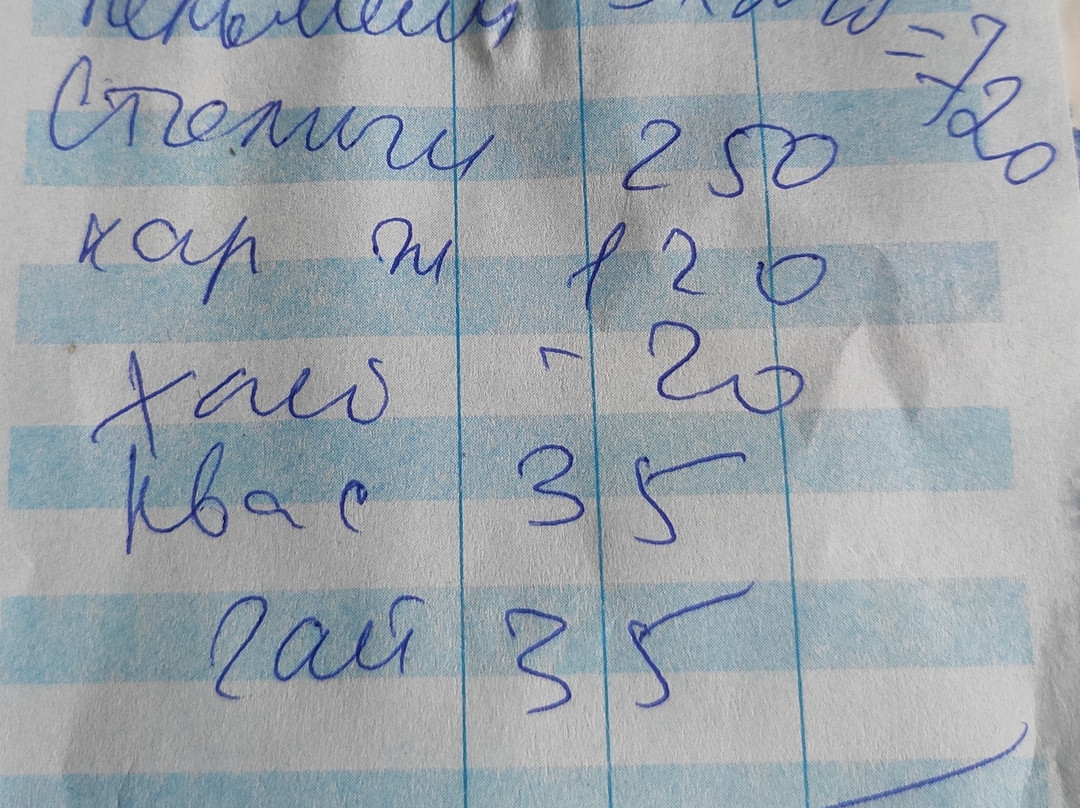 Пельмени 3х240 =720
Столичн 250
кар ж 120
хлеб - 20
квас 35
чай 35